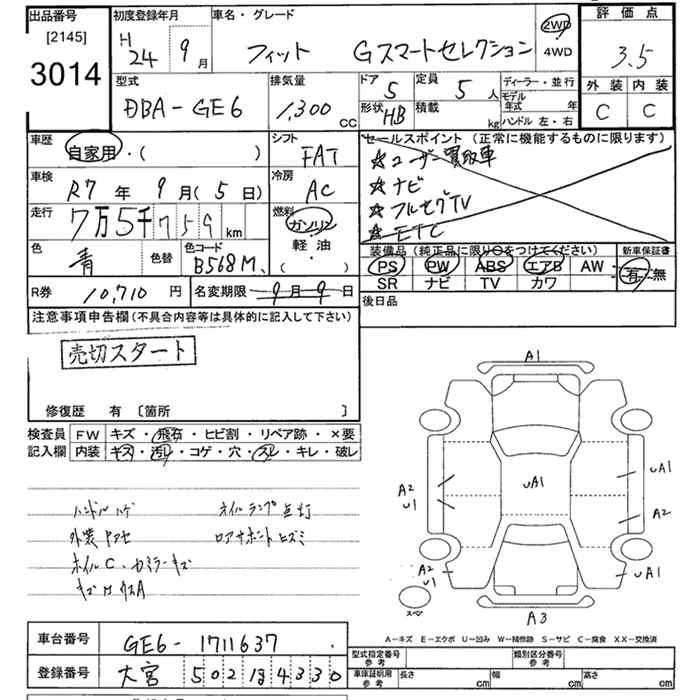 出品番号
[2145]
3014
初度登録年月
H 24 9月
車名・グレード
フィット Gスマートセレクション
2WD
4WD
評価点
3.5
外装 内装
C C
型式
DBA-GE6
排気量
1,300 CC
ドア 5
形状 HB
定員 5人
積載 kg
ディーラー・並行
モデル年式 年
ハンドル 左・右
車歴
自家用・( )
車検
R7年 9月(5日)
走行
7万5千759 km
色
青
色替
色コード
B568M
シフト
FAT
冷房
AC
燃料
ガソリン
軽油
・( )
セールスポイント (正常に機能するものに限ります)
☆ユーザー買取車
☆ナビ
☆フルセグTV
☆ETC
装備品(純正品に限り○をつけてください)
PS PW ABS エアB AW
SR ナビ TV カワ
新車保証書
有・無
R券 10,710円
名変期限 9月9日
後日品
注意事項申告欄(不具合内容等は具体的に記入して下さい)
売切スタート
修復歴 有 〔箇所 〕
検査員記入欄
FW キズ・飛石・ヒビ割・リペア跡・×要
内装 キズ・汚レ・コゲ・穴・スレ・キレ・破レ
ハンドルハゲ オイルランプ点灯
外装ドアセ ロアサポートヒズミ
ホイルC・カミラーキズ
A1
A2
U1
UA1
UA1
A2
A2
U1
UA1
A3
スペア
A-キズ E-エクボ U-凹み W-補修跡 S-サビ C-腐食 XX-交換済
車台番号 GE6-1711637
登録番号 大宮 502 ほ 4330
型式指定番号 参考
類別区分番号 参考
車庫証明用 参考
長さ cm 幅 cm 高さ cm